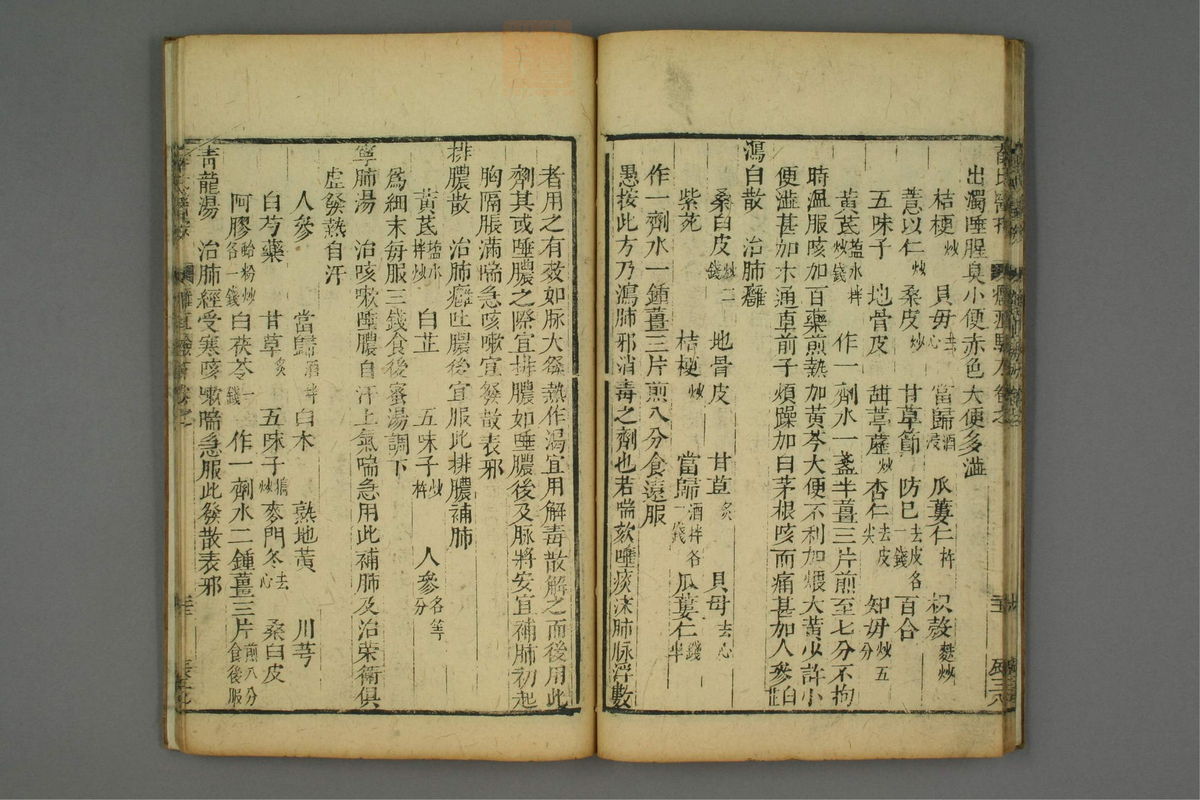 出濁唾腥臭小便赤色大便多澁
桔梗炒 貝毋去心 當歸酒浸 瓜蔞仁杵 枳殼麩炒
薏以仁炒 桑皮炒 甘草節 防已去皮各一錢 百合
五味子 地骨皮 甜葶藶炒 杏仁去皮尖 知毋炒五分
黃茋盬水拌炒錢 作一劑水一盞半薑三片煎至七分不拘
時溫服咳加百藥煎熱加黃芩大便不利加煨大黃少許小
便澁甚加木通車前子煩躁加白茅根咳而痛甚加人參白芷
瀉白散 治肺癰
桑白皮炒二錢 地骨皮 甘草炙 貝母去心
紫苑 桔梗炒 當歸酒拌各一錢 瓜蔞仁錢半
作一劑水一鍾薑三片煎八分食遠服
愚按此方乃瀉肺邪消毒之劑也若喘欬唾痰沫肺脉浮數
者用之有效如脉大發熱作渴宜用解毒散解之而後用此
劑其或唾膿之際宜排膿如唾膿後及脉將安宜補肺初起
胸隔脹滿喘急咳嗽宜發散表邪
排膿散 治肺癰吐膿後宜服此排膿補肺
黃茋盬水拌炒 白芷 五味子炒杵 人參各等分
爲細末每服三錢食後蜜湯調下
寧肺湯 治咳嗽唾膿自汗上氣喘急用此補肺及治榮衛俱
虛發熱自汗
人參 當歸酒拌 白木 熟地黃 川芎
白芍藥 甘草炙 五味子搗炒 麥門冬去心 桑白皮
阿膠蛤粉炒各一錢 白茯苓一錢 作一劑水二鍾薑三片煎八分食後服
靑龍湯 治肺經受寒咳嗽喘急服此發散表邪